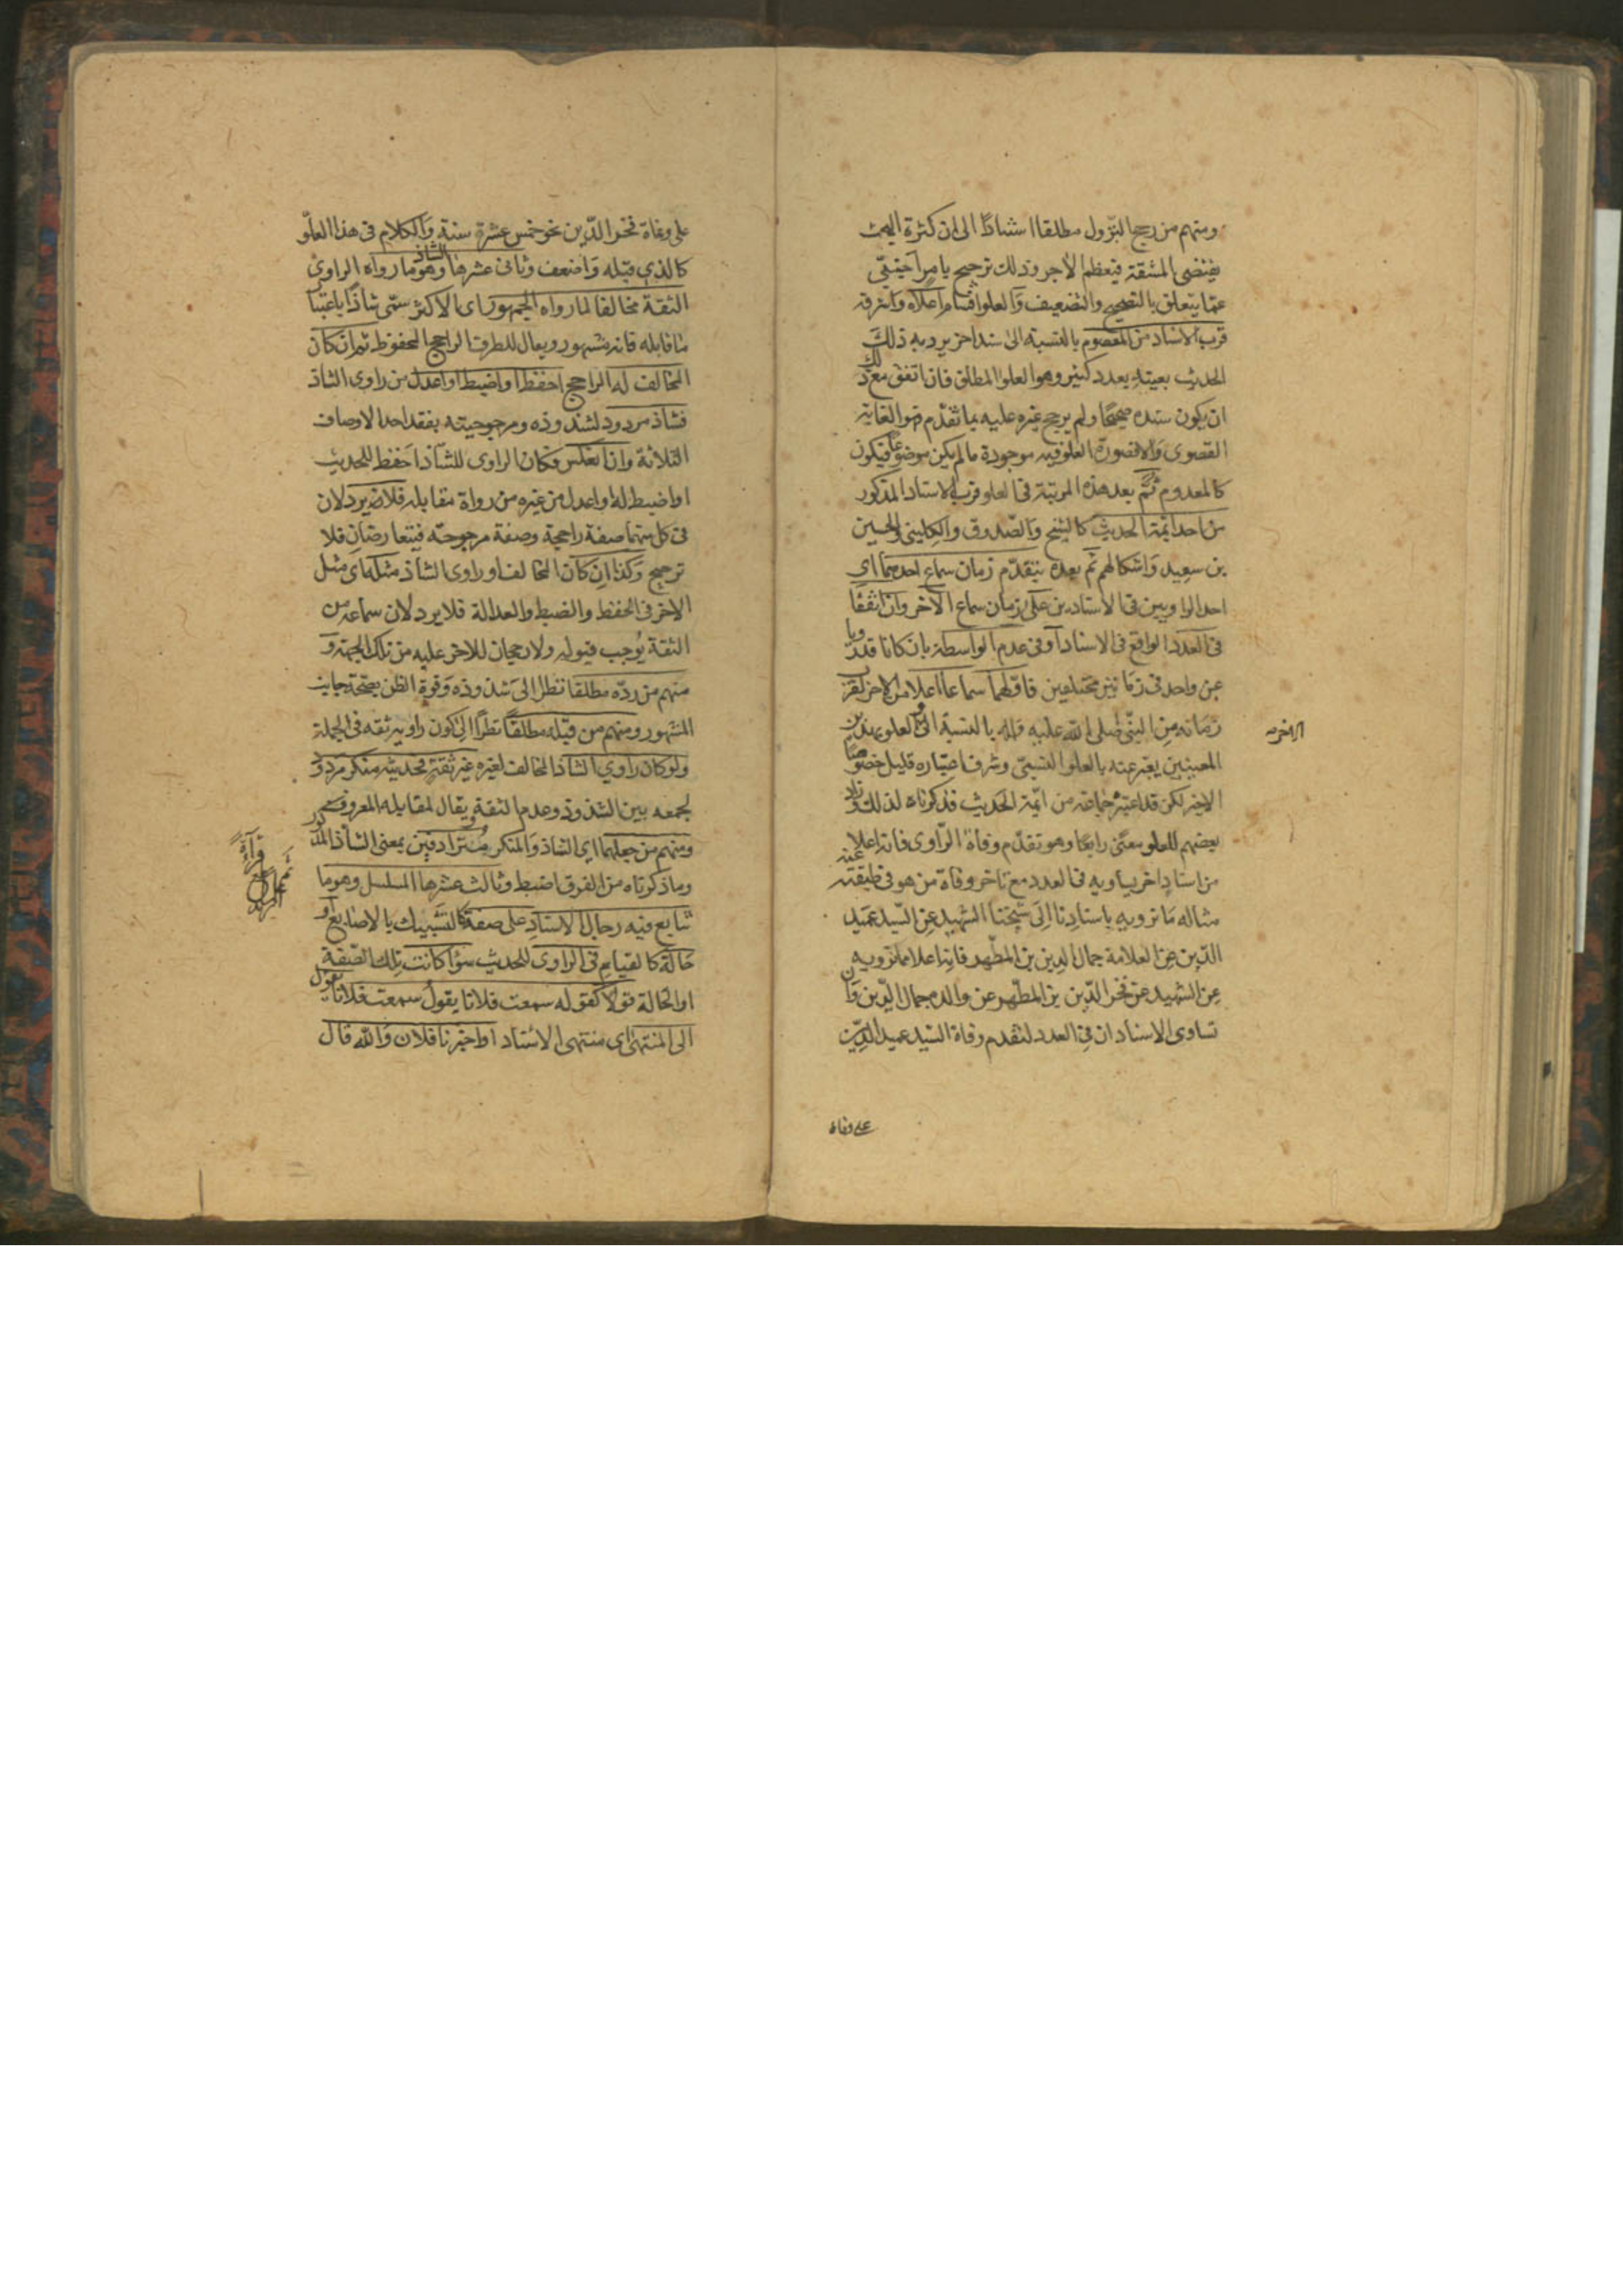 ومنهم من رجح النزول مطلقا استنادا الى ان كثرة البحث
يقتضى المشقة فيعظم الاجر وذلك ترجيح بامر اجنبى
عما يتعلق بالتصحيح والتضعيف والعلو اقسام اعلاه واشرفه
قرب الاسناد من المعصوم بالنسبة الى سند اخر يرد به ذلك
الحديث بعينه بعدد كثير وهو العلو المطلق فان اتفق مع ذلك
ان يكون سنده صحيحا ولم يرجح غيره عليه بما تقدم فهو الغاية
القصوى والا فصورة العلو فيه موجودة ما لم يكن موضوعا فيكون
كالمعدوم ثم بعد هذه المرتبة فى العلو قرب الاسناد المذكور
من احد ائمة الحديث كالشيخ والصدوق والكلينى والحسين
بن سعيد واشكالهم ثم بعده بتقدم زمان سماع احدهما اى
احد الراويين فى الاسنادين على زمان سماع الاخر وان اتفقا
فى العدد الواقع فى الاسناد او فى عدم الواسطة بان كانا قد رويا
عن واحد فى زمانين مختلفين فاولهما سماعا اعلا من الاخر لقرب
زمانه من النبى صلى الله عليه واله بالنسبة الى الاخر والعلو بهذين
المعنيين يعبر عنه بالعلو النسبى وشرف اعتباره قليل خصوصا
الاخير لكن قد اعتبره جماعة من ائمة الحديث فذكرناه لذلك وزاد
بعضهم للعلو معنى رابعا وهو تقدم وفاة الراوى فانه اعلا
من اسناد اخر يساويه فى العدد مع تاخر وفاة من هو فى طبقته عنه
مثاله ما نرويه باسنادنا الى شيخنا الشهيد عن السيد عميد
الدين عن العلامة جمال الدين بن المطهر فانه اعلا مما نرويه
عن الشهيد عن فخر الدين بن المطهر عن والده جمال الدين وان
تساوى الاسنادان فى العدد لتقدم وفاة السيد عميد الدين
على وفاة
على وفاة فخر الدين بنحو خمس عشرة سنة والكلام فى هذا العلو
كالذى قبله واضعف وثانى عشرها الشاذ وهو ما رواه الراوى
الثقة مخالفا لما رواه الجمهور اى الاكثر سمى شاذا باعتبار
ما قابله فانه مشهور ويقال للطرف الراجح المحفوظ ثم ان كان
المخالف له الراجح احفظ او اضبط او اعدل من راوى الشاذ
فشاذ مردود لشذوذه ومرجوحيته بفقد احد الاوصاف
الثلاثة وان انعكس فكان الراوى للشاذ احفظ للحديث
او اضبط له او اعدل من غيره من رواة مقابله فلا يرد لان
فى كل منهما صفة راجحة وصفة مرجوحة فيتعارضان فلا
ترجيح وكذا ان كان المخالف او راوى الشاذ مثله اى مثل
الاخر فى الحفظ والضبط والعدالة فلا يرد لان سماعه من
الثقة يوجب قبوله ولا رجحان للاخر عليه من تلك الجهة و
منهم من رده مطلقا نظرا الى شذوذه وقوة الظن بصحة جانب
المشهور ومنهم من قبله مطلقا نظرا الى كون راويه ثقة فى الجملة
ولو كان راوي الشاذ المخالف لغيره غير ثقة فحديثه منكر مردود
لجمعه بين الشذوذ وعدم الثقة ويقال لمقابله المعروف
ومنهم من جعلهما اى الشاذ والمنكر مترادفين بمعنى الشاذ المذكور
وما ذكرناه من الفرق اضبط وثالث عشرها المسلسل وهو ما
تتابع فيه رجال الاسناد على صفة كالتشبيك بالاصابع او
حالة كالقيام فى الراوى للحديث سواء كانت تلك الصفة
او الحالة قولا كقوله سمعت فلانا يقول سمعت فلانا يقول
الى المنتهى اى منتهى الاسناد او اخبرنا فلان والله قال